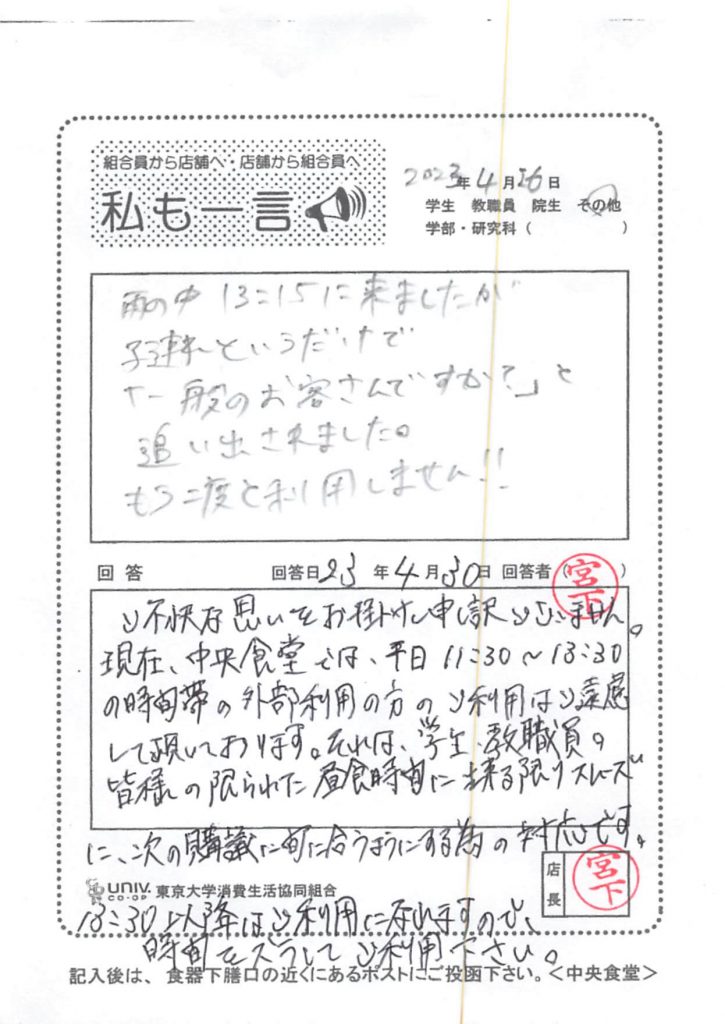 組合員から店舗へ・店舗から組合員へ
私も一言
2023年4月26日
学生 教職員 院生 その他
学部・研究科( )
雨の中 13:15に来ましたが
子連れというだけで
「一般のお客さんですか?」と
追い出されました。
もう二度と利用しません!!
回答 回答日23年4月30日 回答者(宮下)
ご不快な思いをお掛けし申し訳ございません。
現在、中央食堂では、平日 11:30〜13:30
の時間帯の外部利用の方のご利用はご遠慮
して頂いております。それは、学生、教職員の
皆様の限られた昼食時間に出来る限りスムーズ
に、次の講義に間に合うようにする為の対応です。
店長 宮下
UNIV. CO-OP 東京大学消費生活協同組合
13:30以降はご利用になれますので、
時間をズラしてご利用下さい。
記入後は、食器下膳口の近くにあるポストにご投函下さい。<中央食堂>